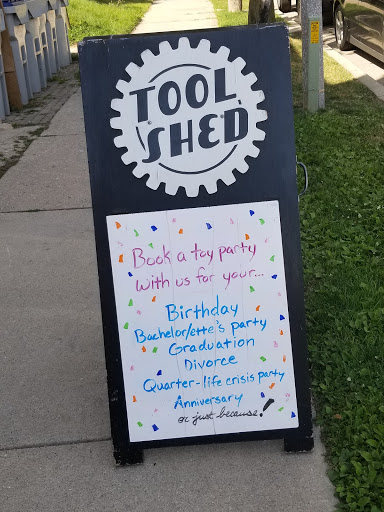 TOOL
SHED
Book a toy party
with us for your...
Birthday
Bachelor/ette's party
Graduation
Divorce
Quarter-life crisis party
Anniversary
or just because!